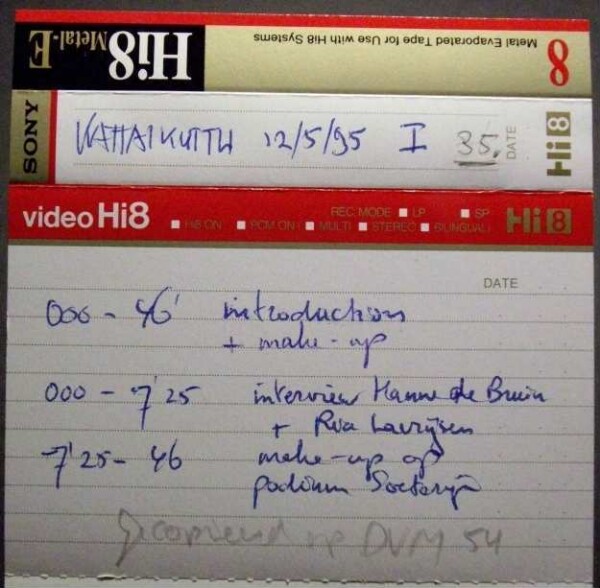 Hi8 Metal-E
Metal Evaporated Tape for Use with Hi8 Systems
8
SONY
KATTAIKUTTU 12/5/95 I 35.
DATE
Hi8
video Hi8
REC. MODE LP SP
Hi8 ON PCM ON MULTI STEREO BILINGUAL
Hi8
DATE
000 - 46' introduction
+ make-up
000 - 7'25 interview Hanne de Bruin
+ Ria Lavrijsen
7'25 - 46 make-up op
podium Soeterijn
Gecopieerd op DVM 54